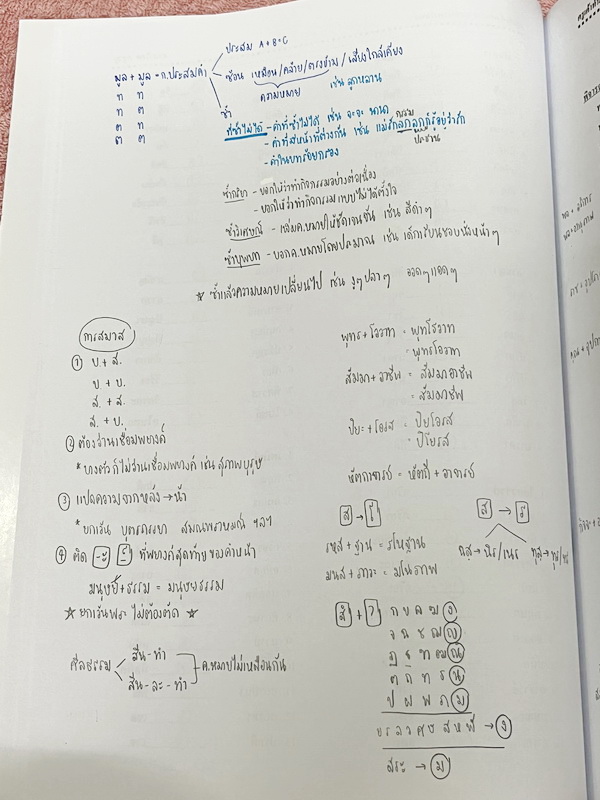 ประสม A + B = C
มูล + มูล = ก.ประสมคำ
ซ้อน เหมือน / คล้าย / ตรงข้าม / เสียงใกล้เคียง
ความหมาย เช่น ลูกหลาน
ซ้ำ
ท ท
ท ต
ต ท
ต ต
ที่ซ้ำไม่ได้ - คำที่ซ้ำไม่ได้ เช่น จะจะ นานา
กรรม
- คำที่ทำหน้าที่ต่างกัน เช่น แม่รักลูกลูกก็รู้อยู่ว่ารัก
ประธาน
- คำในบทร้อยกรอง
ซ้ำกริยา - บอกให้ว่าทำกิจกรรมอย่างต่อเนื่อง
- บอกให้ว่าทำกิจกรรมแบบไม่ได้ตั้งใจ
ซ้ำวิเศษณ์ - เพิ่มค.หมายให้ชัดเจนขึ้น เช่น สีดำๆ
ซ้ำบุพบท - บอกค.หมายโดยประมาณ เช่น เด็กเรียนชอบนั่งหน้าๆ
☆ ซ้ำแล้วความหมายเปลี่ยนไป เช่น งูๆปลาๆ ออดๆแอดๆ
การสมาส
① บ. + ส.
บ. + บ.
ส. + ส.
ส. + บ.
② ต้องอ่านเชื่อมพยางค์
* บางตัวก็ไม่อ่านเชื่อมพยางค์ เช่น สุภาพบุรุษ
③ แปลความจากหลัง → หน้า
* ยกเว้น บุตรภรรยา สมณพราหมณ์ ฯลฯ
④ ตัด -ะ -์ ที่พยางค์สุดท้ายของคำหน้า
มนุษย์ + ธรรม = มนุษยธรรม
☆ ยกเว้นพระ ไม่ต้องตัด ☆
ศีลธรรม
สีน - ทำ
สีน - ละ - ทำ
ค.หมายไม่เหมือนกัน
พุทธ + โอวาท = พุทโธวาท
= พุทธโอวาท
สัมมา + อาชีพ = สัมมาอาชีพ
= สัมมาชีพ
ปิยะ + โอรส = ปิยโอรส
= ปิโยรส
หัตถาจารย์ = หัตถี + อาจารย์
ส → โ
รหส + ฐาน = รโหฐาน
มนส + ภาวะ = มโนภาพ
ส → ร
ทุส → ทุร/ทร
สํ + ?
ก ข ค ฆ ง
จ ฉ ช ฌ ญ
ฏ ฐ ฑ ฒ ณ
ต ถ ท ธ น
ป ผ พ ภ ม
ย ร ล ว ศ ษ ส ห ฬ → ง
สระ → ม